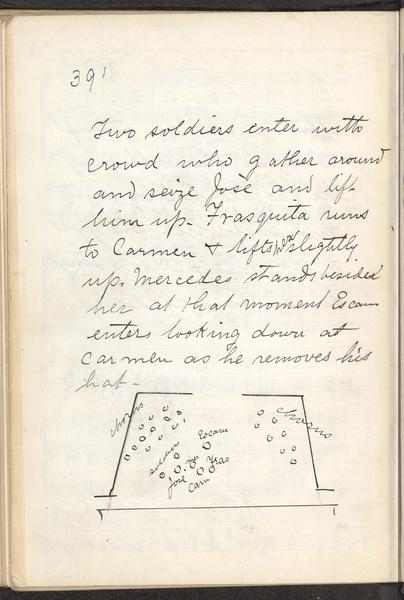 391
Two soldiers enter with
crowd who gather around
and seize José and lift
him up. Frasquita runs
to Carmen & lifts her slightly
up. Mercedes stands beside
her at that moment Escam
enters looking down at
Carmen as he removes his
hat -
chorus
chorus
Escam
soldier
Mer
Fras
José
Carm